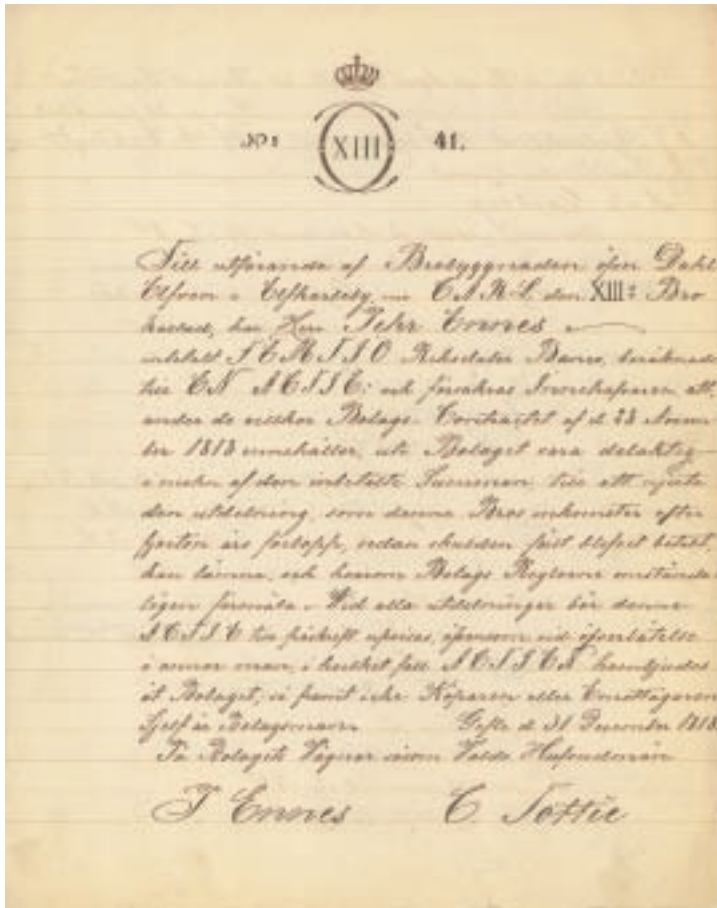 No: XIII 41.
Till utförande af Brobyggnaden öfver Dahl
Elfven i Elfkarleby, CARL den XIII: Bro
kallad, har Herr Pehr Ennes
inbetalt FEMTIO Riksdaler Banco, beräknade
till EN ACTIE: och försäkras Innehafvaren att,
under de villkor Bolags-Contractet af d. 23 Novem-
ber 1813 innehåller, uti Bolaget vara delaktig
i mohn af den inbetalte Summan, till att njuta
den utdelning, som denna Bros inkomster efter
fjorton års förlopp, sedan skulden först blefvet betalt,
kan lämna, och hvarom Bolags Reglorne omstände-
ligen förmäla. Vid alla utdelningar bör denna
ACTIE till påskrift upvisas, äfvensom vid öfverlåtelse
i annor man, i hvilket fall ACTIEN hembjudes
åt Bolaget, så framt icke Köparen eller Emottagaren
sjelf är Bolagsman. Gefle d. 31 December 1818.
På Bolagets Vägnar såsom Valde Hufvudmän
P Ennes C. Tottie